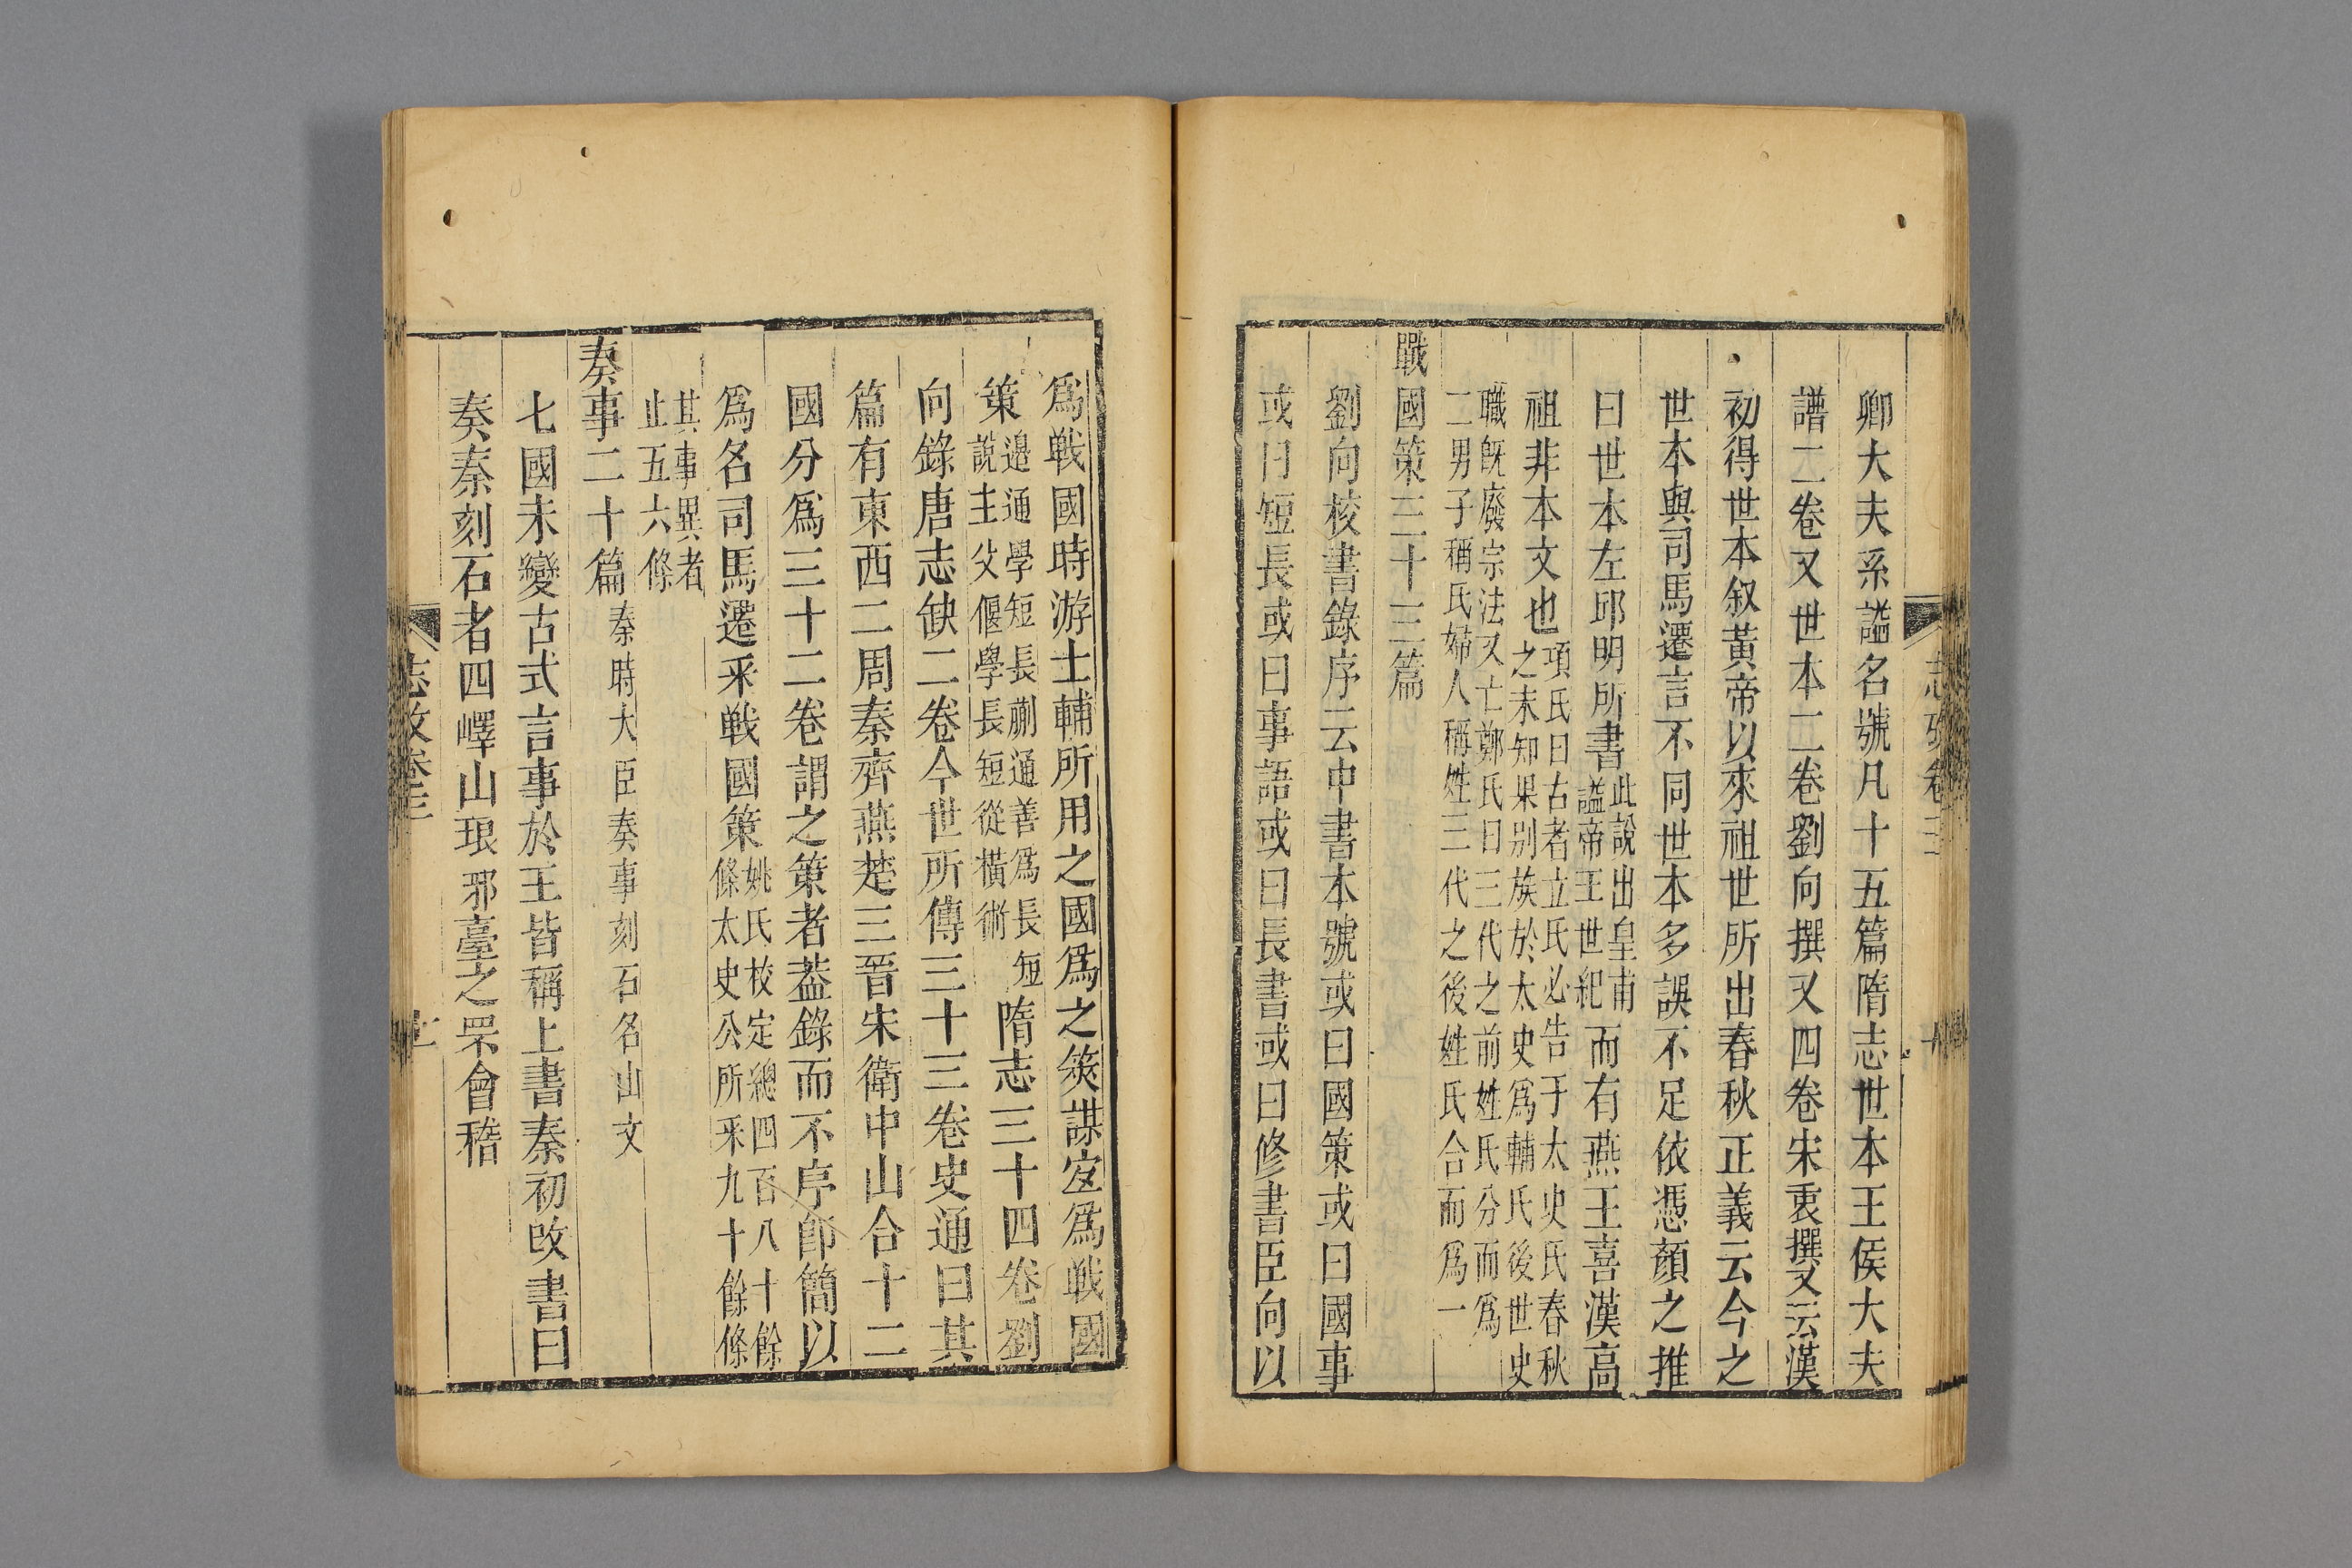 卿大夫系謚名號凡十五篇隋志世本王侯大夫
譜二卷又世本二卷劉向撰又四卷宋衷撰又云漢
初得世本叙黃帝以來祖世所出春秋正義云今之
世本與司馬遷言不同世本多誤不足依憑顏之推
曰世本左邱明所書此說出皇甫謚帝王世紀而有燕王喜漢高
祖非本文也項氏曰古者立氏必告于太史氏春秋之末知果别族於太史爲輔氏後世史
職既廢宗法又亡鄭氏曰三代之前姓氏分而爲
二男子稱氏婦人稱姓三代之後姓氏合而爲一
戰國策三十三篇
劉向校書錄序云中書本號或曰國策或曰國事
或曰短長或曰事語或曰長書或曰修書臣向以
爲戰國時游士輔所用之國爲之筴謀宐爲戰國
策邊通學短長蒯通善爲長短說主父偃學長短從橫術隋志三十四卷劉
向錄唐志缺二卷今世所傳三十三卷史通曰其
篇有東西二周秦齊燕楚三晉宋衛中山合十二
國分爲三十二卷謂之策者葢錄而不序卽簡以
爲名司馬遷采戰國策姚氏校定總四百八十餘條太史公所采九十餘條
其事異者止五六條
奏事二十篇秦時大臣奏事刻石名山文
七國未變古式言事於王皆稱上書秦初改書曰
奏秦刻石者四嶧山琅邪臺之罘會稽